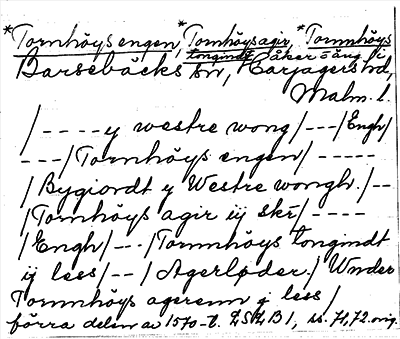 *Tornhöys engen, *Tornhöys agir, *Tornmhöys
tongindt åker o äng i
Barsebäcks sn, Harjagers hd,
Malm. l.
/----y westre wong/---/Engh/
---/Tornhöys engen/-----
/Bygiordt y Westre wongh./--
/Tornhöys agir iij skr/----
/Engh/--./Tornmhöys tongindt
ij less/--/Agerløder./Wnder
Tornmhöys agerenn j less/
förra delen av 1570-t. LSÄ B 1, ss. 71, 72. orig.